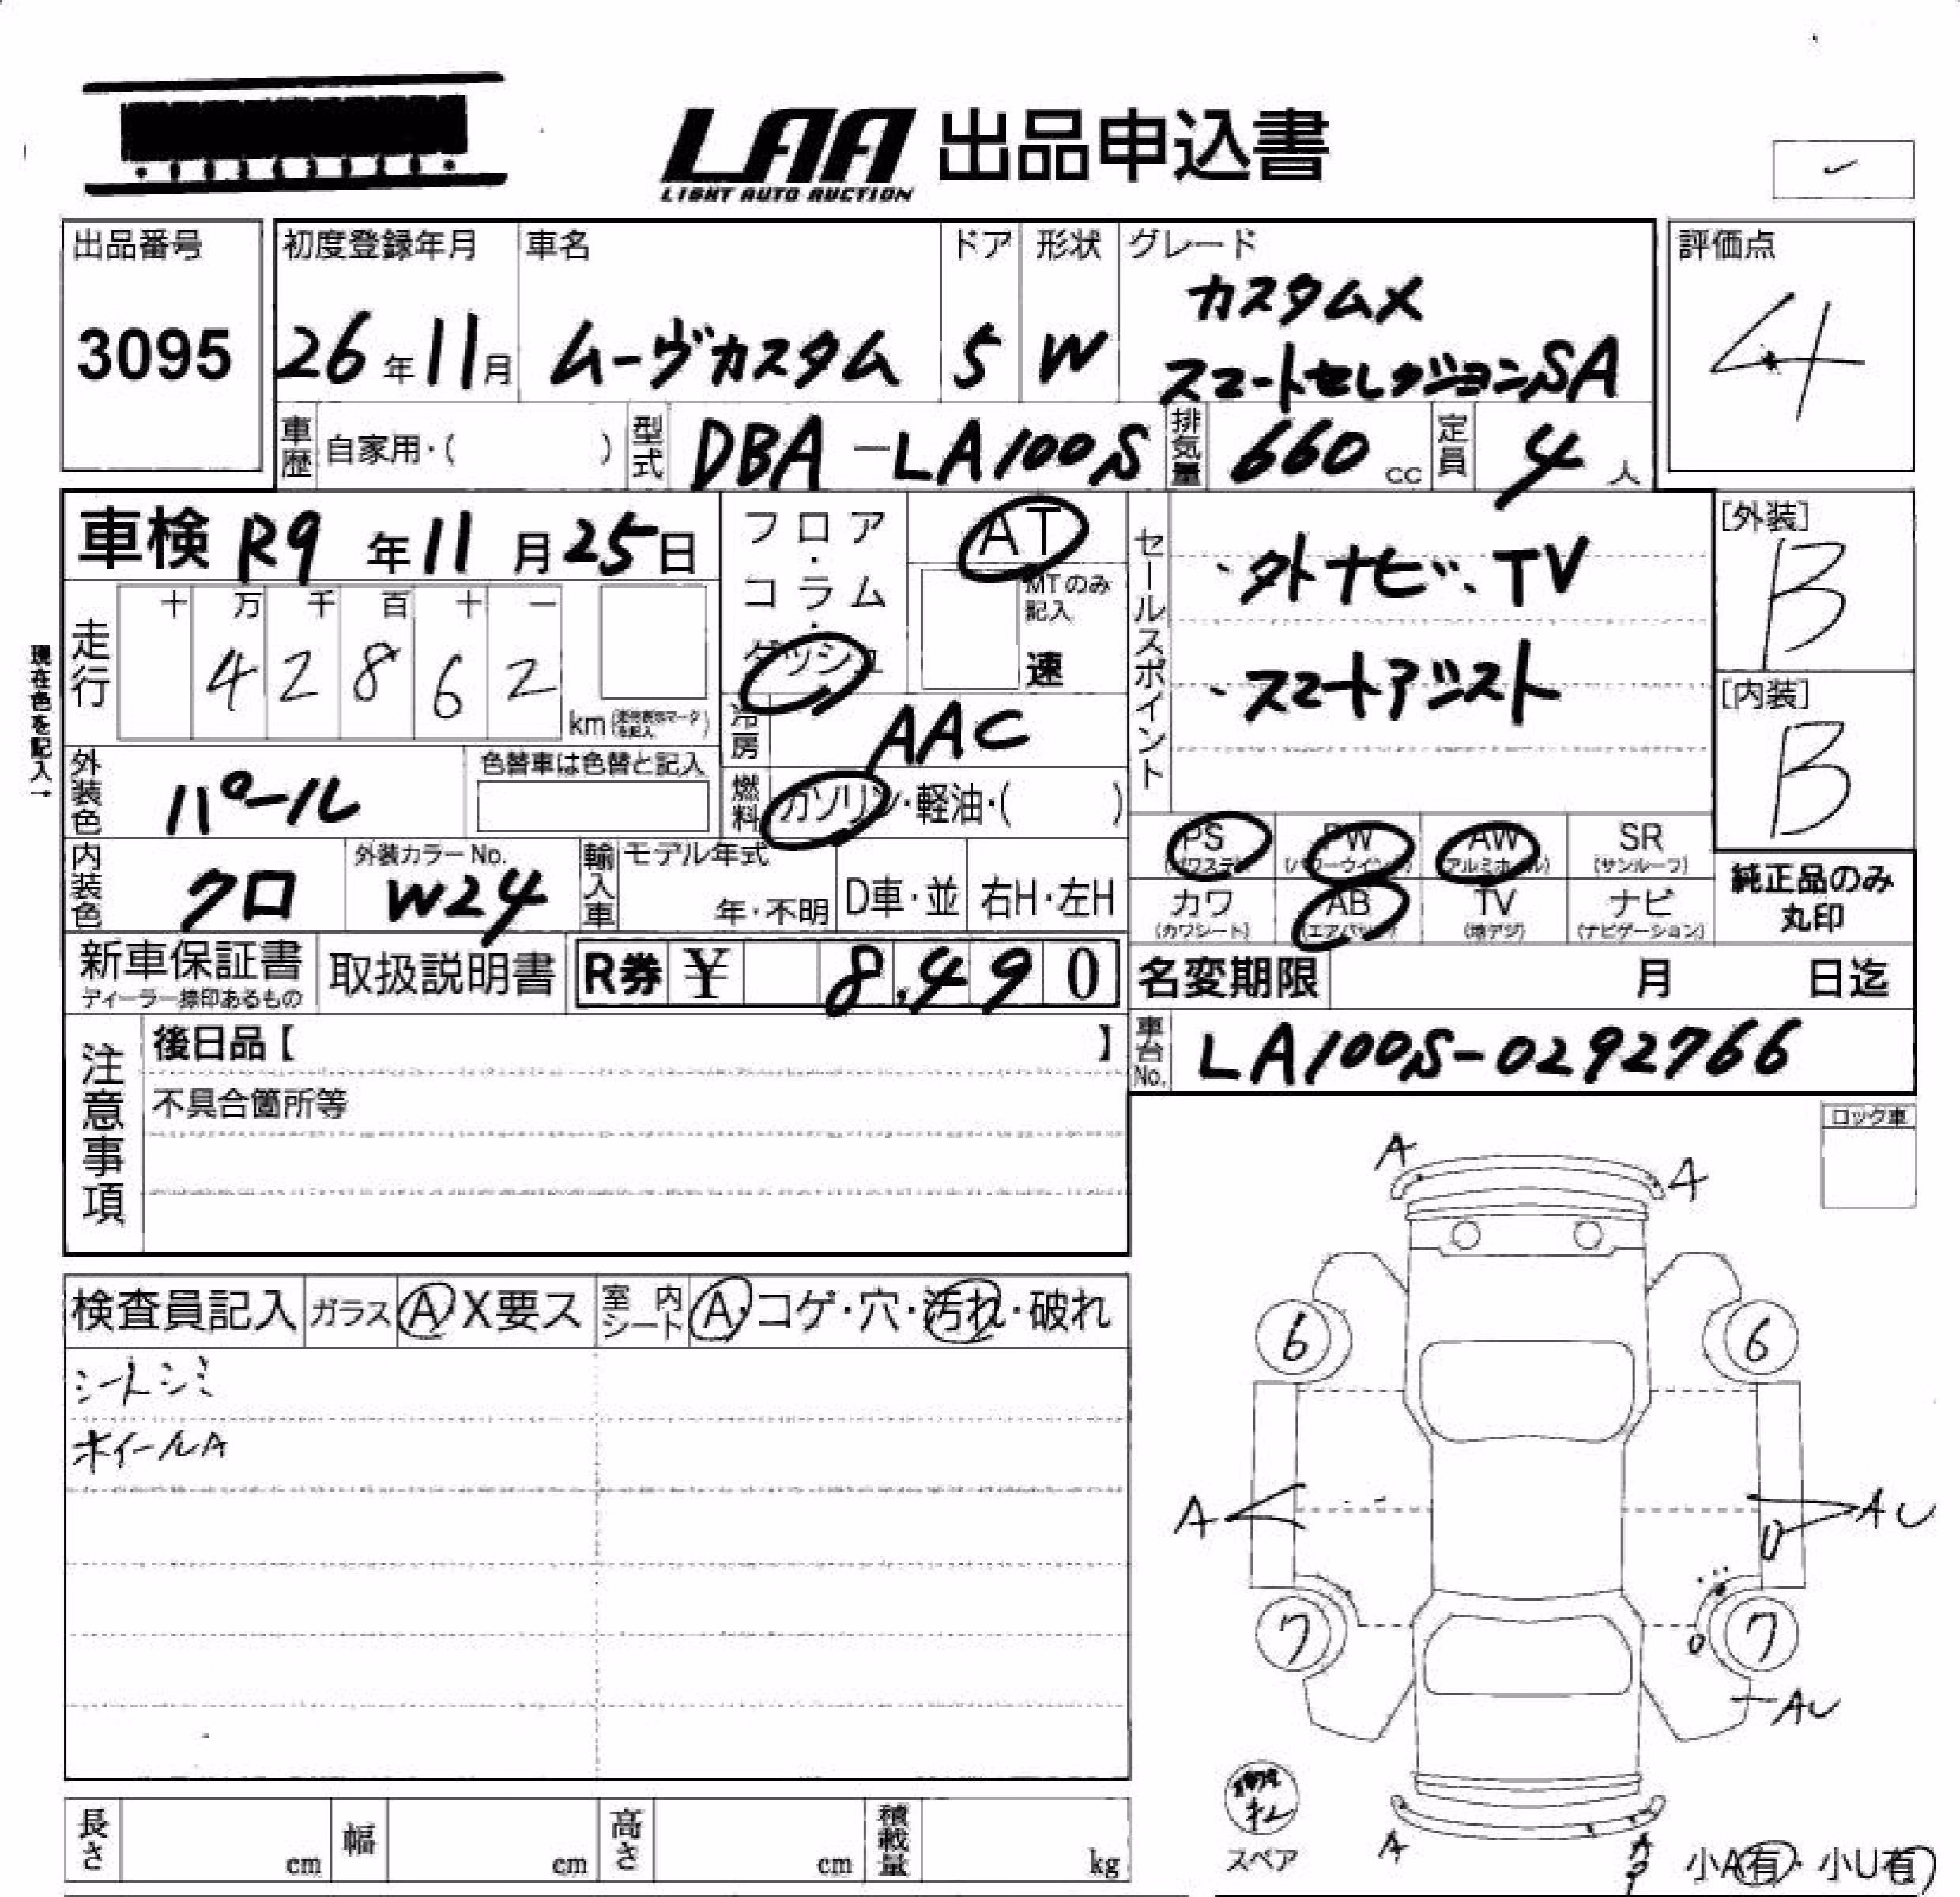 LAA 出品申込書
LIGHT AUTO AUCTION
出品番号
3095
初度登録年月
26年11月
車名
ムーヴカスタム
ドア
5
形状
W
グレード
カスタムX
スマートセレクションSA
評価点
4
車歴 自家用・( )
型式 DBA-LA100S
排気量 660 cc
定員 4 人
車検 R9 年 11 月 25 日
フロア・コラム・ダッシュ
AT
MTのみ記入
速
走行
十 万 千 百 十 一
4 2 8 6 2
km
現在色を記入→
冷房 AAC
外装色 パール
色替車は色替と記入
燃料 ガソリン・軽油・( )
内装色 クロ
外装カラーNo.
W24
輸入車 モデル年式
年・不明
D車・並
右H・左H
セールスポイント
・外ナビ、TV
・スマートアシスト
[外装]
B
[内装]
B
PS (パワステ)
PW (パワーウインドウ)
AW (アルミホイール)
SR (サンルーフ)
カワ (カワシート)
AB (エアバック)
TV (地デジ)
ナビ (ナビゲーション)
純正品のみ
丸印
新車保証書
取扱説明書
R券 ¥ 8,490
名変期限 月 日迄
車台No. LA100S-0292766
注意事項
後日品【 】
不具合箇所等
ロック車
検査員記入
ガラス A X要ス
室内シート A・コゲ・穴・汚れ・破れ
シートシミ
ホイールA
A
A
6
6
A
AU
U
7
7
AU
A
スペア
小A有・小U有
長さ cm
幅 cm
高さ cm
積載量 kg